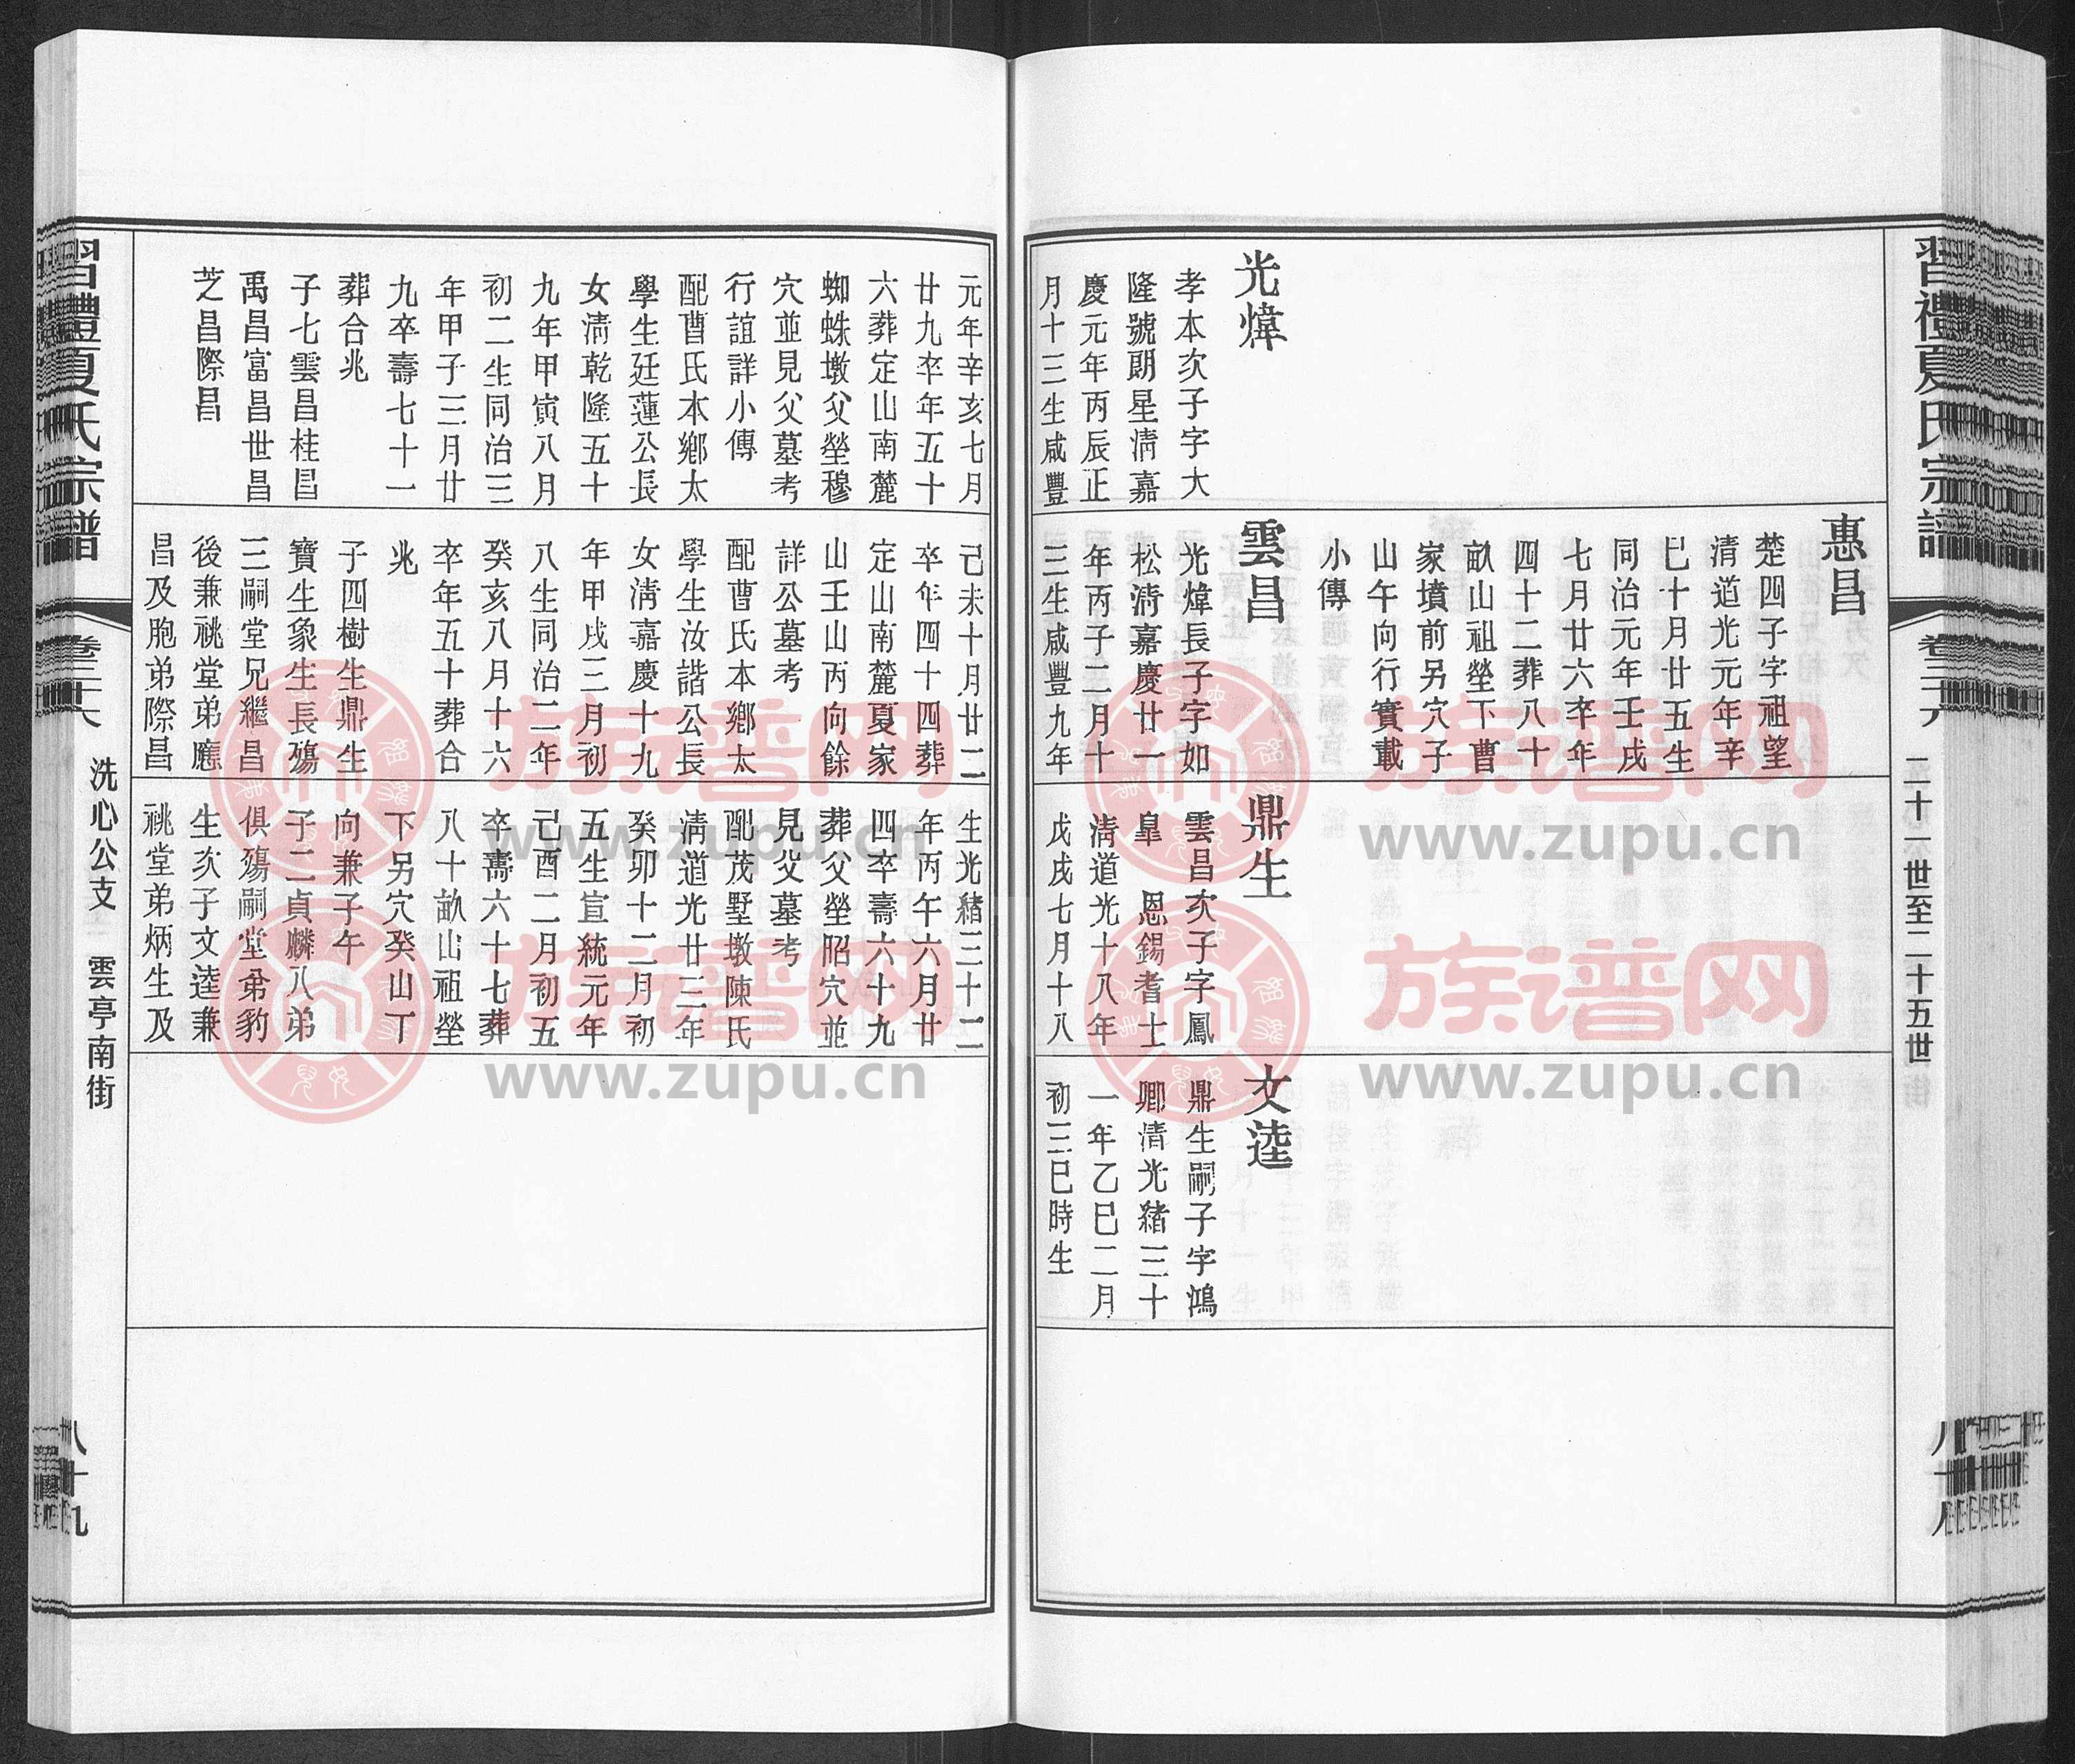 習禮夏氏宗譜
二十一世至二十五世
光煒
孝本次子字大
隆號朗星清嘉
慶元年丙辰正
月十三生咸豐
惠昌
楚四子字祖望
清道光元年辛
巳十月廿五生
同治元年壬戌
七月廿六卒年
四十二葬八十
畝山祖塋下曹
家墳前另穴子
山午向行實載
小傳
雲昌
光煒長子字如
松清嘉慶廿一
年丙子二月十
三生咸豐九年
鼎生
雲昌次子字鳳
臯 恩錫耆士
清道光十八年
戊戌七月十八
文逵
鼎生嗣子字鴻
卿清光緒三十
一年乙巳二月
初三巳時生
元年辛亥七月
廿九卒年五十
六葬定山南麓
蜘蛛墩父塋穆
穴並見父墓考
行誼詳小傳
配曹氏本鄉太
學生廷蓮公長
女清乾隆五十
九年甲寅八月
初二生同治三
年甲子三月廿
九卒壽七十一
葬合兆
子七雲昌桂昌
禹昌富昌世昌
芝昌際昌
己未十月廿二
卒年四十四葬
定山南麓夏家
山壬山丙向餘
詳公墓考
配曹氏本鄉太
學生汝諧公長
女清嘉慶十九
年甲戌三月初
八生同治二年
癸亥八月十六
卒年五十葬合
兆
子四樹生鼎生
寶生象生長殤
三嗣堂兄繼昌
後兼祧堂弟應
昌及胞弟際昌
生光緒三十二
年丙午六月廿
四卒壽六十九
葬父塋昭穴並
見父墓考
配茂墅墩陳氏
清道光廿三年
癸卯十二月初
五生宣統元年
己酉二月初五
卒壽六十七葬
八十畝山祖塋
下另穴癸山丁
向兼子午
子二貞麟八弟
俱殤嗣堂弟豹
生次子文逵兼
祧堂弟炳生及
習禮夏氏宗譜
洗心公支 雲亭南街
八十九
族谱网
www.zupu.cn
族谱网
www.zupu.cn
族谱网
www.zupu.cn
族谱网
www.zupu.cn